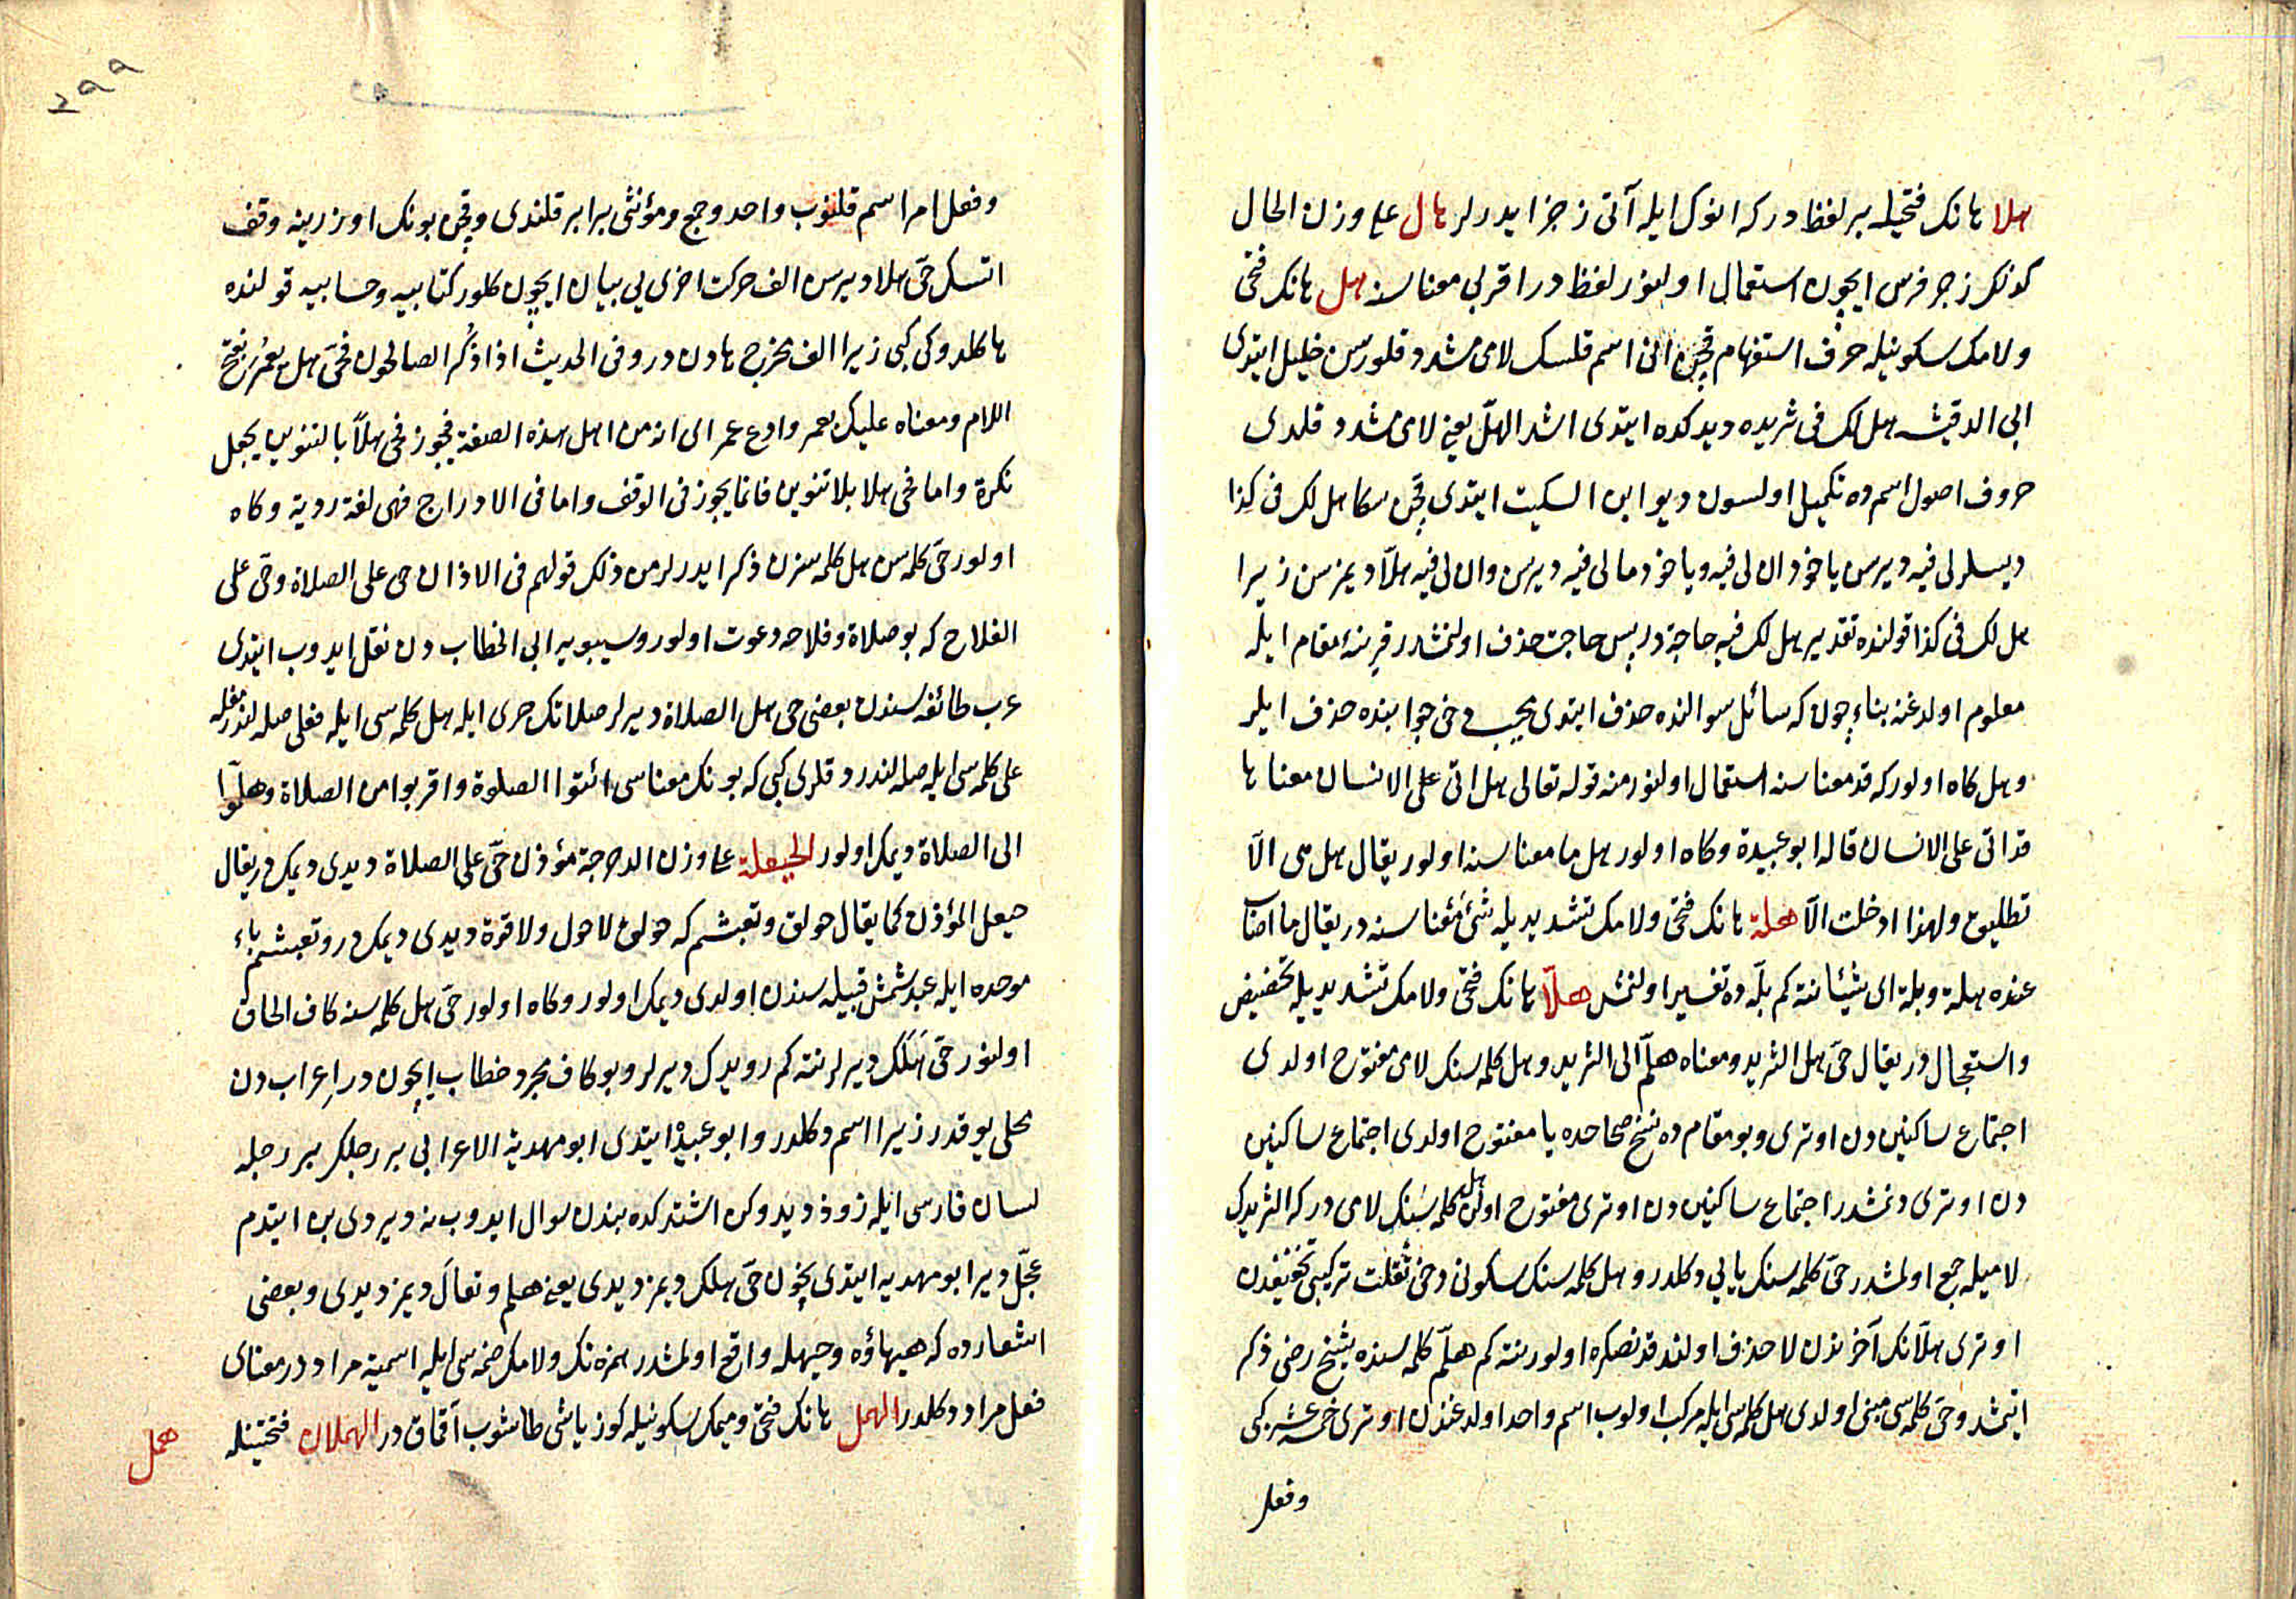 هلا هانك فتحيله بر لفظدر كه انوك ايله آتى زجر ايدرلر هال على وزن الحال
كونك زجر فرس ايچون استعمال اولنور لفظدر اقربى معناسنه هل هانك فتحى
ولامك سكونيله حرف استفهام قچن انى اسم قلسك لامى مشدد قلورسن خليل ايتدى
ابى الدقيش هل لك فى ثريده ديدكده ايتدى اشد الهلّ يعنى لامى مشدد قلدى
حروف اصول اسم ده تكميل اولسون ديو ابن السكيت ايتدى قچن سكا هل لك فى كذا
ديسلر لى فيه ديرسن ياخود ان لى فيه وياخود مالى فيه ديرسن وان لى فيه هلّا ديمزسن زيرا
هل لك فى كذا قولنده تقدير هل لك فيه حاجة در پس حاجت حذف اولنمشدر قرينهٔ مقام ايله
معلوم اولدغنه بناء چون كه سائل سوالنده حذف ايتدى مجيب دخى جوابنده حذف ايلر
وهل كاه اولور كه قد معناسنه استعمال اولنور منه قوله تعالى هل اتى على الانسان معناها
قد اتى على الانسان قاله ابو عبيدة وكاه اولور هل ما معناسنه اولور يقال هل هى الّا
تطليق ولهذا ادخلت الّا هلة هانك فتحى ولامك تشديديله شئ معناسنه در يقال ما اصاب
عنده هلة وبلة اى شيئا نته كم بلّه ده تفسير اولنمش هلّا هانك فتحى ولامك تشديديله تحضيض
واستعجال در يقال حىّ هل الثريد ومعناه هلمّ الى الثريد وهل كلمه سنك لامى مفتوح اولدى
اجتماع ساكنين دن اوترى وبو مقام ده نسخ صحاحده يا مفتوح اولدى اجتماع ساكنين
دن اوترى دنمشدر اجتماع ساكنين دن اوترى مفتوح اولن هل كلمه سنك لامى در كه الثريدك
لاميله جمع اولمشدر حىّ كلمه سنك يايى دكلدر وهل كلمه سنك سكونى دخى ثقلت تركيبى تخفيفدن
اوترى هلّانك آخرندن لا حذف اولندقدنصكره اولور نته كم هلمّ كلمه سنده شيخ رضى ذكر
ايتمشد وحىّ كلمه سى مبنى اولدى هل كلمه سى ايله مركب اولوب اسم واحد اولدغندن اوترى خمسه عشر كبى
وفعل
٢٩٩
وفعل امر اسم قلنوب واحد وجمع ومؤنثى برابر قلندى وقچن بونك اوزرينه وقف
اتسك حىّ هلا ديرسن الف حركت اخرى يى بيان ايچون كلور كتابيه وحسابيه قولنده
ها كلدوكى كبى زيرا الف مخرج هادن در وفى الحديث اذا ذُكر الصالحون فحىّ هل بعمر بفتح
اللام ومعناه عليك بعمر وادع عمر اى انه من اهل هذه الصفة فيجوز فحى هلاً بالتنوين يجعل
نكرة واما فحى هلا بلا تنوين فانما يجوز فى الوقف واما فى الادراج فهى لغة ردية وكاه
اولور حىّ كلمه سن هل كلمه سنزن ذكر ايدرلر من ذلك قولهم فى الاذان حى على الصلاة وحى على
الفلاح كه بو صلاة وفلاحه دعوت اولور وسيبويه ابى الخطاب دن نقل ايدوب ايتدى
عرب طائفه سندن بعضى حى هل الصلاة ديرلر صلاتك جرى ايله هل كلمه سى ايله فعلى صله لندرمغله
على كلمه سى ايله صله لندردقلرى كبى كه بونك معناسى ائتوا الصلوة واقربوا من الصلاة وهلمّوا
الى الصلاة ديمك اولور الحيعلة على وزن الدحرجة مؤذن حىّ على الصلاة ديدى ديمك در يقال
حيعل المؤذن كما يقال حولق وتعبشم كه حولق لا حول ولا قوة ديدى ديمك در وتعبشم باء
موحده ايله عبد شمش قبيله سندن اولدى ديمك اولور وكاه اولور حىّ هل كلمه سنه كاف الحاق
اولنور حىّ هَلَك ديرلر نته كم رويدك ديرلر وبو كاف مجرد خطاب ايچون در اعراب دن
محلى يوقدر زيرا اسم دكلدر وابو عبيدة ايتدى ابو مهدية الاعرابى بر رجلك بر رجله
لسان فارسى ايله زوذ ديدوكن اشتدكده بندن سوال ايدوب نه دير دى بن ايتدم
عجّل دير ابو مهديه ايتدى نچون حىّ هلك ديمز ديدى يعنى هلم وتعال ديمز ديدى وبعضى
اشعارده كه هيهاؤه وحيهله واقع اولمشدر همزه نك ولامك ضمه سى ايله اسميه مراد در معناى
فعل مراد دكلدر الهمل هانك فتحى وميمك سكونيله كوز ياشى طاشوب آقاق در الهملان فتحتينله
همل